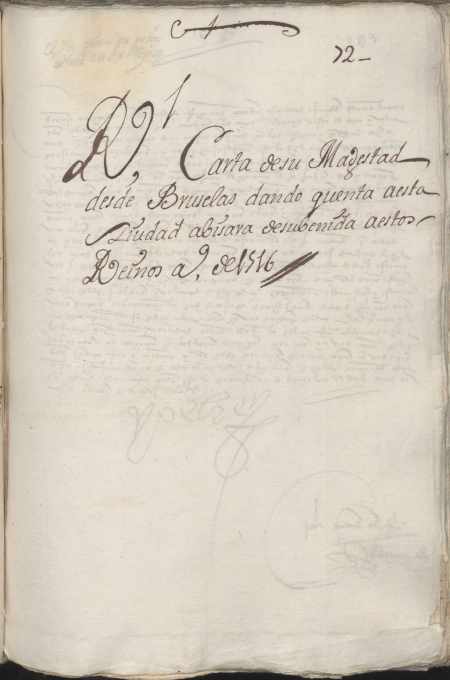 72-
Rl Carta desu Magestad
desde Bruselas dando quenta aesta
Ciudad abisara desubenida aestos
Reinos aº, de 1516